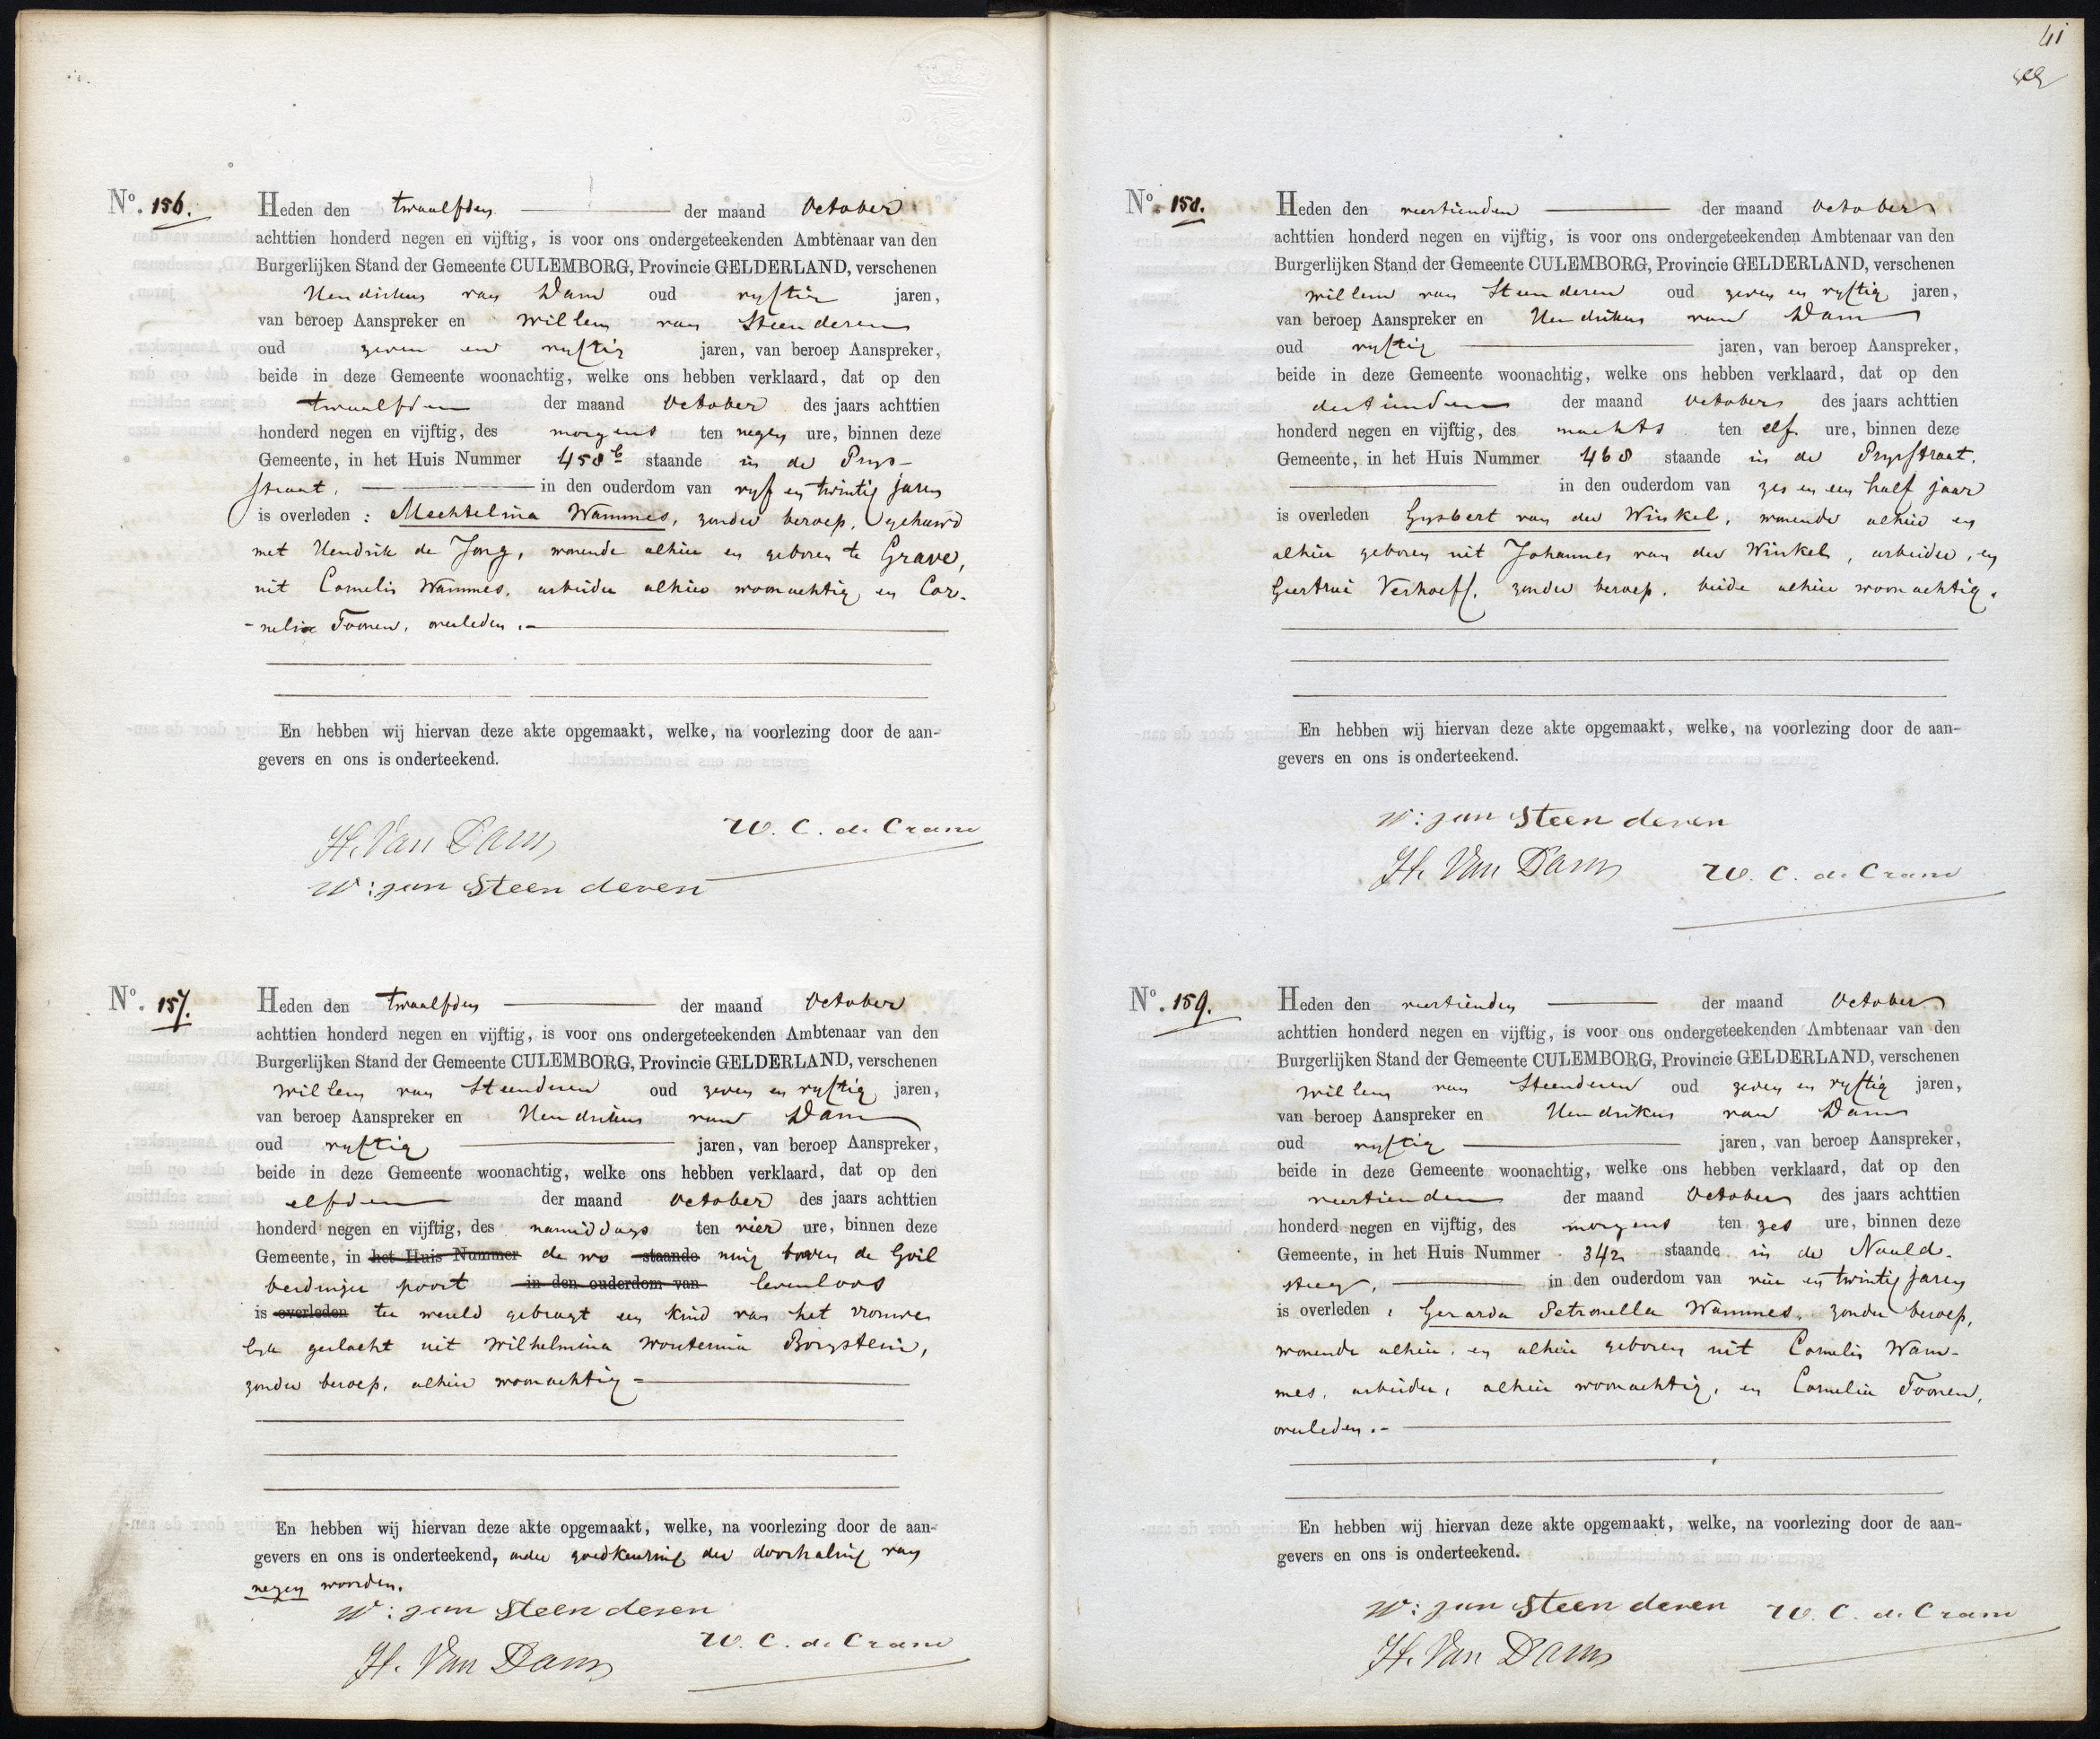 Nº. 156.
Heden den twaalfden der maand October
achttien honderd negen en vijftig, is voor ons ondergeteekenden Ambtenaar van den
Burgerlijken Stand der Gemeente CULEMBORG, Provincie GELDERLAND, verschenen
Hendrikus van Dam oud vyftig jaren,
van beroep Aanspreker en Willem van Steenderen
oud zeven en vyftig jaren, van beroep Aanspreker,
beide in deze Gemeente woonachtig, welke ons hebben verklaard, dat op den
twaalfden der maand October des jaars achttien
honderd negen en vijftig, des morgens ten negen ure, binnen deze
Gemeente, in het Huis Nummer 458b staande in de Prys-
straat, in den ouderdom van vyf en twintig jaren
is overleden : Mechtelina Wammes, zonder beroep, gehuwd
met Hendrik de Jong, wonende alhier en geboren te Grave,
uit Cornelis Wammes, arbeider alhier woonachtig en Cor-
-nelia Toonen, overleden.-
En hebben wij hiervan deze akte opgemaakt, welke, na voorlezing door de aan-
gevers en ons is onderteekend.
H. Van Dam
W. C. de Crane
W: van Steenderen
Nº. 157.
Heden den twaalfden der maand October
achttien honderd negen en vijftig, is voor ons ondergeteekenden Ambtenaar van den
Burgerlijken Stand der Gemeente CULEMBORG, Provincie GELDERLAND, verschenen
Willem van Steenderen oud zeven en vyftig jaren,
van beroep Aanspreker en Hendrikus van Dam
oud vyftig jaren, van beroep Aanspreker,
beide in deze Gemeente woonachtig, welke ons hebben verklaard, dat op den
elfden der maand October des jaars achttien
honderd negen en vijftig, des namiddags ten vier ure, binnen deze
Gemeente, in het Huis Nummer de wo staande ning boven de Goil
berdinger poort in den ouderdom van levenloos
is overleden ter wereld gebragt een kind van het vrouwe
lyk geslacht uit Wilhelmina Wouterina Borgstein,
zonder beroep, alhier woonachtig -
En hebben wij hiervan deze akte opgemaakt, welke, na voorlezing door de aan-
gevers en ons is onderteekend, onder goedkeuring der doorhaling van
negen woorden.
W: van Steenderen
W. C. de Crane
H. Van Dam
41
Nº. 158.
Heden den veertienden der maand October
achttien honderd negen en vijftig, is voor ons ondergeteekenden Ambtenaar van den
Burgerlijken Stand der Gemeente CULEMBORG, Provincie GELDERLAND, verschenen
Willem van Steenderen oud zeven en vyftig jaren,
van beroep Aanspreker en Hendrikus van Dam
oud vyftig jaren, van beroep Aanspreker,
beide in deze Gemeente woonachtig, welke ons hebben verklaard, dat op den
dertienden der maand October des jaars achttien
honderd negen en vijftig, des nachts ten elf ure, binnen deze
Gemeente, in het Huis Nummer 468 staande in de Prysstraat,
in den ouderdom van zes en een half jaar
is overleden Gysbert van der Winkel, wonende alhier en
alhier geboren uit Johannes van der Winkel, arbeider, en
Geertrui Verhoeff, zonder beroep, beide alhier woonachtig.
En hebben wij hiervan deze akte opgemaakt, welke, na voorlezing door de aan-
gevers en ons is onderteekend.
W: van Steenderen
H. Van Dam
W. C. de Crane
Nº. 159.
Heden den veertienden der maand October
achttien honderd negen en vijftig, is voor ons ondergeteekenden Ambtenaar van den
Burgerlijken Stand der Gemeente CULEMBORG, Provincie GELDERLAND, verschenen
Willem van Steenderen oud zeven en vyftig jaren,
van beroep Aanspreker en Hendrikus van Dam
oud vyftig jaren, van beroep Aanspreker,
beide in deze Gemeente woonachtig, welke ons hebben verklaard, dat op den
veertienden der maand October des jaars achttien
honderd negen en vijftig, des morgens ten zes ure, binnen deze
Gemeente, in het Huis Nummer 342 staande in de Naald-
steeg, in den ouderdom van vier en twintig jaren
is overleden, Gerarda Petronella Wammes, zonder beroep,
wonende alhier, en alhier geboren uit Cornelis Wam-
mes, arbeider, alhier woonachtig, en Cornelia Toonen,
overleden.-
En hebben wij hiervan deze akte opgemaakt, welke, na voorlezing door de aan-
gevers en ons is onderteekend.
W: van Steenderen
W. C. de Crane
H. Van Dam